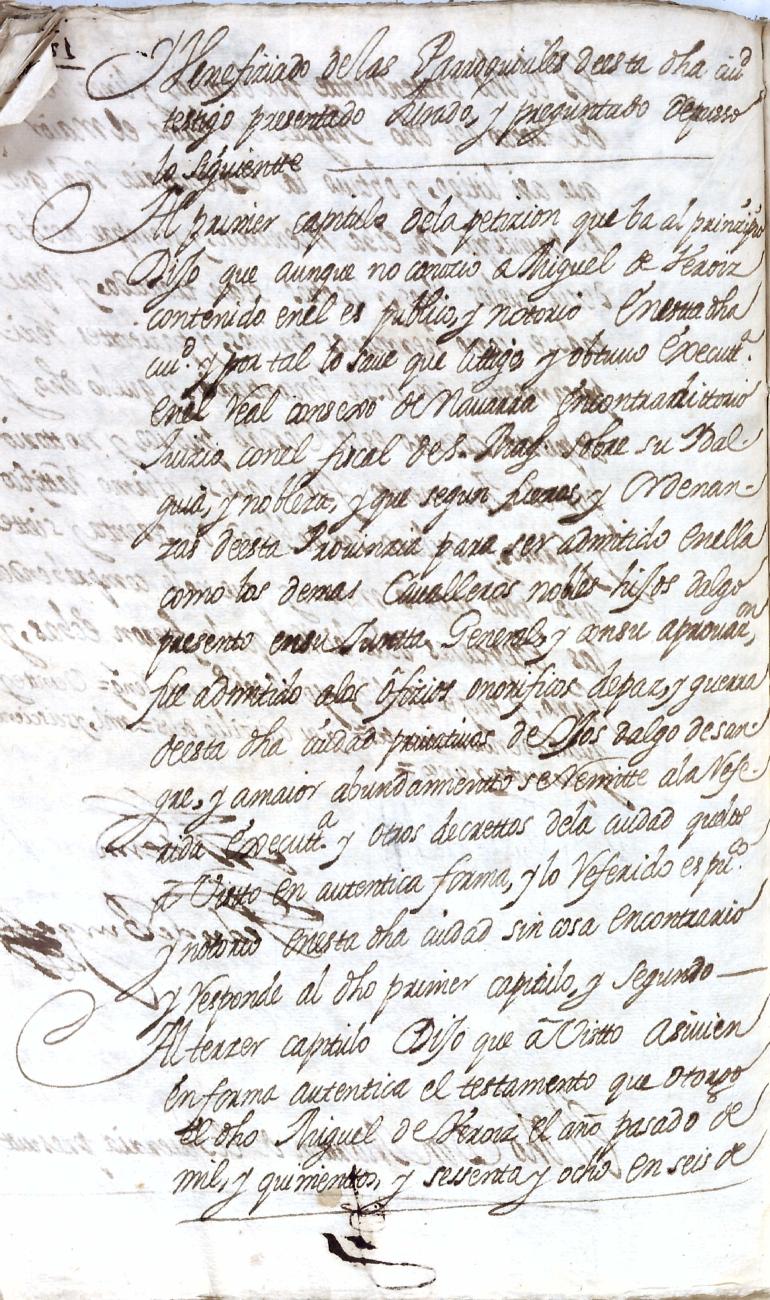 Veneficiado de las Parroquiales deesta dha ciud
testigo presentado Jurado, y preguntado depusso
lo siguientte
Al primer capitulo dela petizion que ba al prinzipio
Dijo que aunque no conozio a Miguel de Veroiz
contenido enel es publico, y notorio Enestadha
ciud. y por tal lo save que litigo, y obtuvo Executta.
enel Real consexo de Navarra Encontradittorio
Juizio conel fiscal de S. Magd. sobre su Ydal-
guia, y nobleza, y que segun fueros, y Ordenan-
zas deesta Provinzia para ser admitido enella
como los demas Cavalleros nobles hijos dalgo
presento ensu Juntta General, y consu aprovazon,
fue admitido alos ofizios onorificos depaz, y guerra
deesta dha ciudad privativos de hijos dalgo desan-
gre, y amaior abundamientto se Remitte ala Refe-
rida Executta. y otros decrettos dela ciudad quelos
â Vistto en autentica forma, y lo Referido es puco.
y notorio enesta dha ciudad sin cosa Encontrario
y Responde al dho primer capitulo, y segundo
Al terzer capitulo Dijo que â Vistto asivien
en forma autentica el testamento que otorgo
el dho Miguel de Veroiz el año pasado de
mil, y quinientos, y sessenta y ocho en seis de